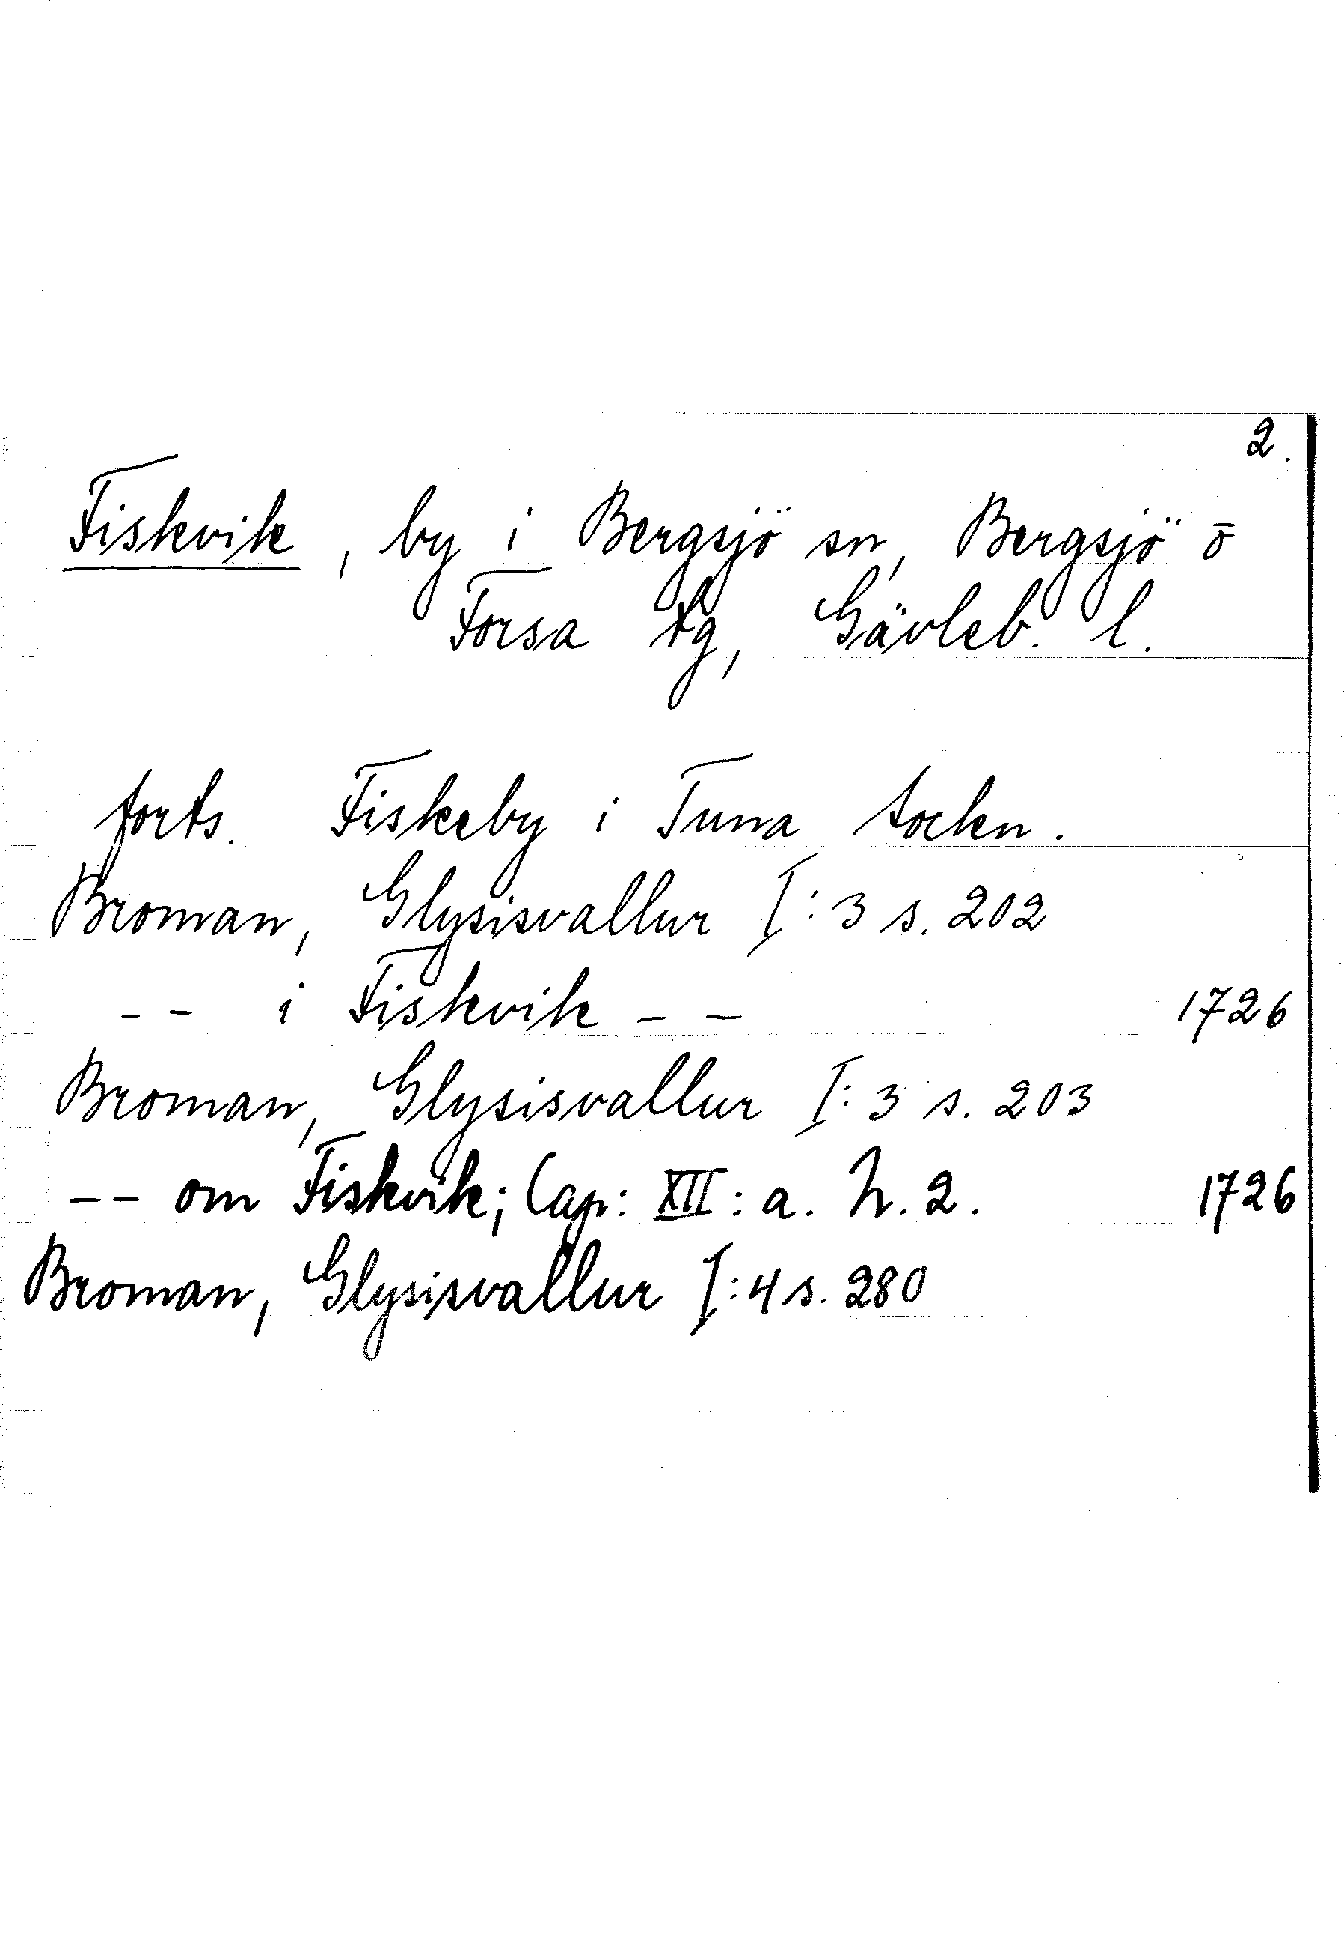 2.
Fiskvik, by i Bergsjö sn, Bergsjö o
Forsa tg, Gävleb. l.
forts. Fiskeby i Tuna socken.
Broman, Glysisvallur I:3 s. 202
-- i Fiskvik -- 1726
Broman, Glysisvallur I:3 s. 203
-- om Fiskvik; Cap: XII: a. h. 2. 1726
Broman, Glysisvallur I:4 s. 280